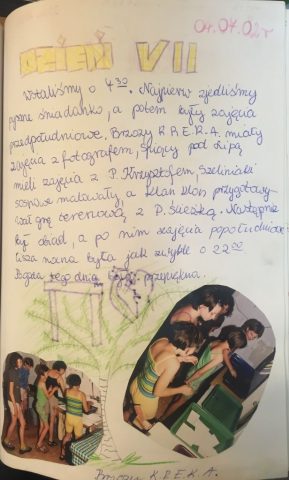 04.07.02r
DZIEŃ VII
Wstaliśmy o 4 30. Najpierw zjedliśmy
pyszne śniadanko, a potem były zajęcia
przedpołudniowe. Brzozy K.R.E.K.A. miały
zajęcia z fotografem, Śpiący pod Lipą
mieli zajęcia z P. Krzysztofem, Szeliniaki
sosnowe malowały, a klan klon przygotowy-
wał grę terenową z P. Śliczką. Następnie
był obiad, a po nim zajęcia popołudniowe
Cisza nocna była jak zwykle o 22 00
Pogoda tego dnia była przepiękna.
Brzozy K.R.E.K.A.